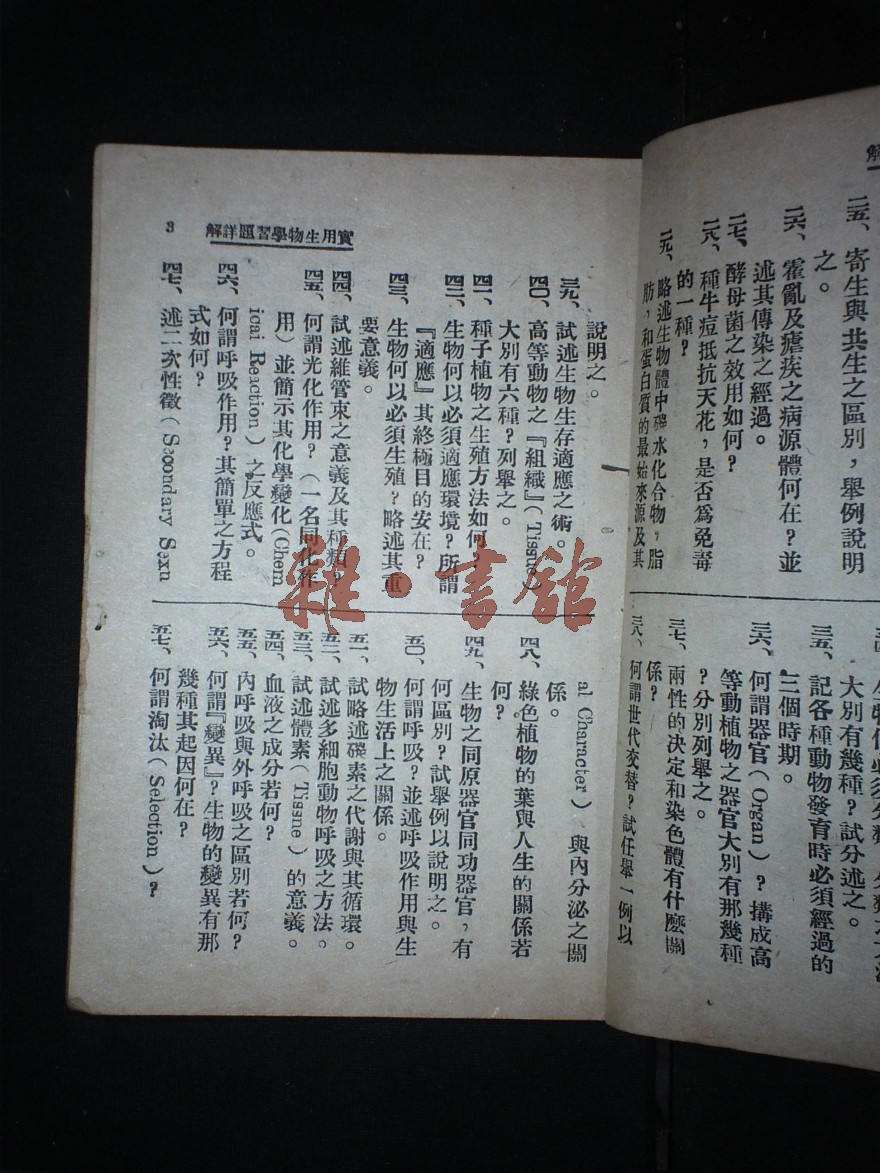 二五、寄生與共生之區別，舉例說明
之。
二六、霍亂及瘧疾之病源體何在？並
述其傳染之經過。
二七、酵母菌之效用如何？
二八、種牛痘抵抗天花，是否爲免毒
的一種？
二九、略述生物體中礦水化合物，脂
肪，和蛋白質的最始來源及其
大別有幾種？試分述之。
三五、記各種動物發育時必須經過的
三個時期。
三六、何謂器官（Organ）？搆成高
等動植物之器官大別有那幾種
？分別列舉之。
三七、兩性的決定和染色體有什麽關
係？
三八、何謂世代交替？試任舉一例以
實用生物學習題詳解
3
說明之。
三九、試述生物生存適應之術。
四〇、高等動物之『組織』（Tissue
大別有六種？列舉之。
四一、種子植物之生殖方法如何
四二、生物何以必須適應環境？所謂
『適應』其終極目的安在？
四三、生物何以必須生殖？略述其重
要意義。
四四、試述維管束之意義及其種類？
四五、何謂光化作用？（一名同化作
用）並簡示其化學變化（Chem
icai Reaction）之反應式。
四六、何謂呼吸作用？其簡單之方程
式如何？
四七、述二次性徵（Secondary Sexu
al Character）與內分泌之關
係。
四八、綠色植物的葉與人生的關係若
何？
四九、生物之同原器官同功器官，有
何區別？試舉例以說明之。
五〇、何謂呼吸？並述呼吸作用與生
物生活上之關係。
五一、試略述礦素之代謝與其循環。
五二、試述多細胞動物呼吸之方法。
五三、試述體素（Tissne）的意義。
五四、血液之成分若何？
五五、內呼吸與外呼吸之區別若何？
五六、何謂『變異』？生物的變異有那
幾種其起因何在？
五七、何謂淘汰（Selection）？
雜·書館